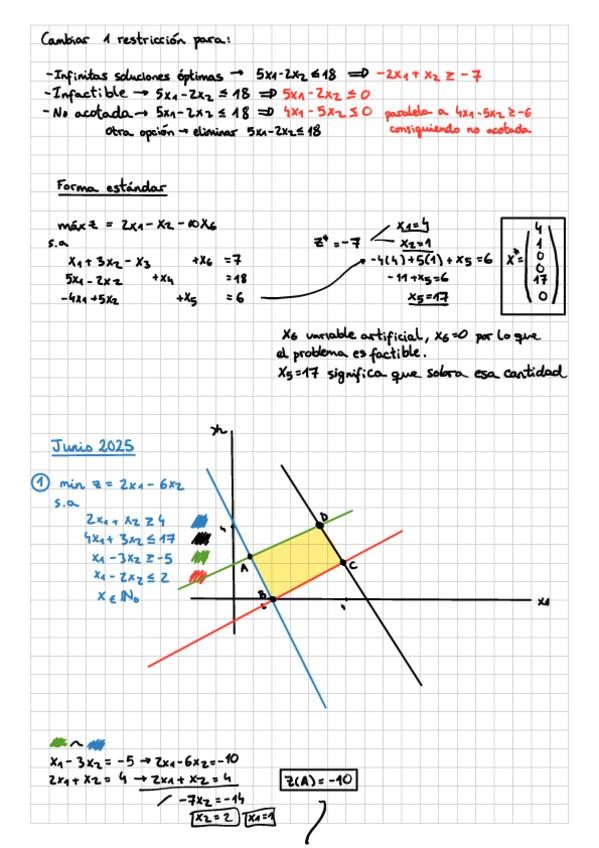 Cambiar 1 restricción para:
- Infinitas soluciones óptimas → 5x1-2x2 ≤ 18 ⇒ -2x1 + x2 ≥ -7
- Infactible → 5x1-2x2 ≤ 18 ⇒ 5x1-2x2 ≤ 0
- No acotada → 5x1-2x2 ≤ 18 ⇒ 4x1-5x2 ≤ 0 paralela a 4x1-5x2 ≥ -6
Otra opción → eliminar 5x1-2x2 ≤ 18 consiguiendo no acotada
Forma estándar
máx z = 2x1 - x2 - 10x6
s.a
x1 + 3x2 - x3 + x6 = 7
5x1 - 2x2 + x4 = 18
-4x1 + 5x2 + x5 = 6
z* = -7
x1 = 4
x2 = 1
-4(4) + 5(1) + x5 = 6
-11 + x5 = 6
x5 = 17
x* =
4
1
0
0
17
0
x6 variable artificial, x6=0 por lo que
el problema es factible.
x5=17 significa que sobra esa cantidad
Junio 2025
1 min z = 2x1 - 6x2
s.a
2x1 + x2 ≥ 4
4x1 + 3x2 ≤ 17
x1 - 3x2 ≥ -5
x1 - 2x2 ≤ 2
x ∈ N0
x2
4
D
A
C
B
x1
~
x1 - 3x2 = -5 → 2x1 - 6x2 = -10
2x1 + x2 = 4 → 2x1 + x2 = 4
z(A) = -10
-7x2 = -14
x2 = 2 x1 = 1